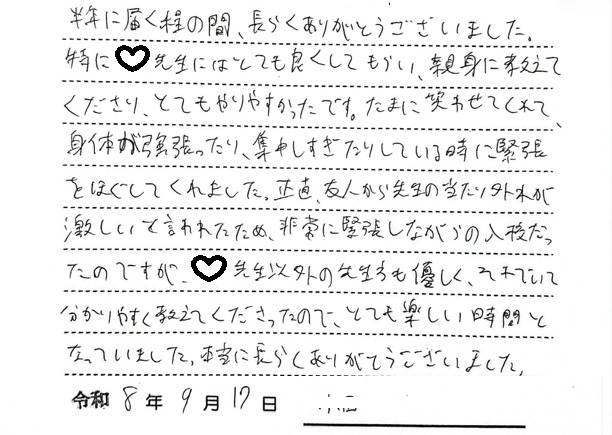 半年に届く程の間、長らくありがとうございました。
特に♡先生にはとても良くしてもらい、親身に教えて
くださり、とてもやりやすかったです。たまに笑わせてくれて、
身体が強張ったり、集中しすぎたりしている時に緊張
をほぐしてくれました。正直、友人から先生の当たり外れが
激しいと言われたため、非常に緊張しながらの入校だっ
たのですが、♡先生以外の先生方も優しく、それでいて
分かりやすく教えてくださったので、とても楽しい時間と
なっていました。本当に長らくありがとうございました。
令和 8 年 9 月 17 日